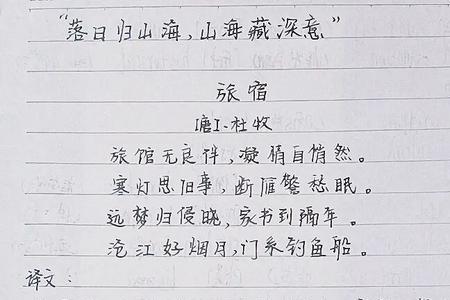 “落日归山海，山海藏深意”
旅宿
[唐]·杜牧
旅馆无良伴，凝情自悄然。
寒灯思旧事，断雁警愁眠。
远梦归侵晓，家书到隔年。
沧江好烟月，门系钓鱼船。
译文：